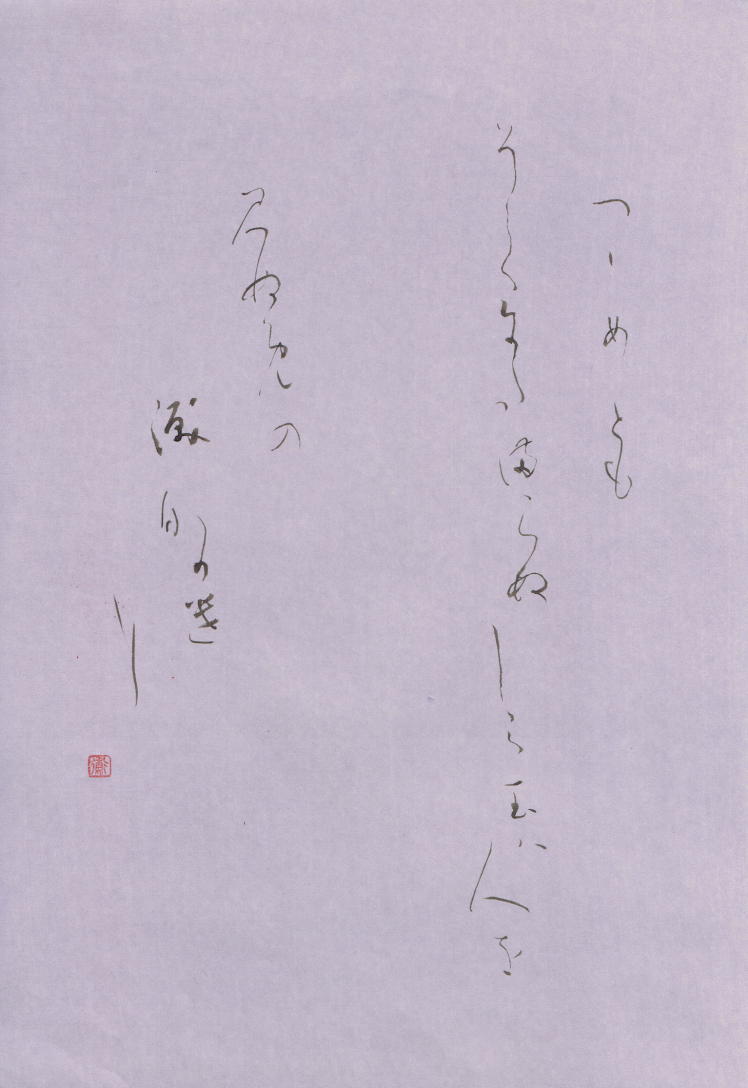 つゝめとも
そてにたまらぬしら玉ハ人を
見ぬめの
涙なりけり